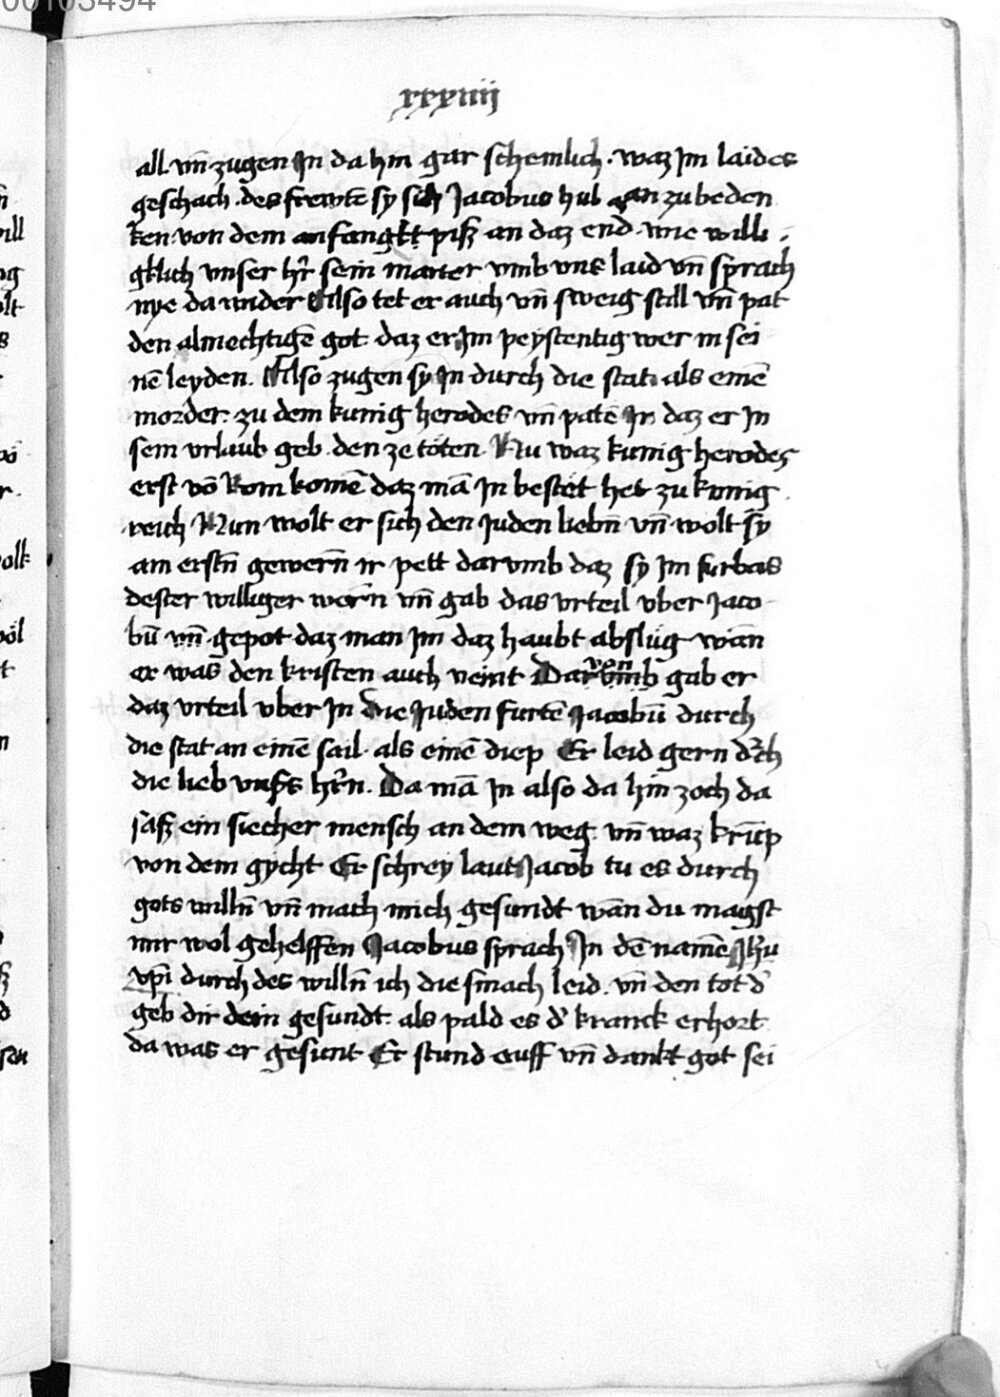 00103494
xxxiiij
all vn̄ zugen Jn da hin gar schemlich · waz Jm laides
geschach · des frewtē sy sich Jacobus hub an zu beden
ken von dem anfangkt piß an daz end · wie willi
gklich vnser hr̄ sein marter vmb vns laid vn̄ sprach
nye da wider Also tet er auch vn̄ sweig still vn̄ pat
den almechtigē got daz er Jm peystentig wer in sei
nē leyden. Also zugen sy Jn durch die stat als einē
morder · zu dem kunig herodes vn̄ patē Jn daz er Jn
sein vrlaub geb den ze töten · Nu waz kunig herodes
erst vō Rom komē daz mā Jn bestet het zu kunig
reich Nun wolt er sich den Juden liebn̄ vn̄ wolt sy
am erstn̄ gewern̄ ir pett darvmb daz sy Jm furbas
dester williger wern̄ vn̄ gab das vrteil vber Jaco
bū vn̄ gepot daz man Jm daz haubt abslüg wān
er was den kristen auch veint Darvmb gab er
daz vrteil vber Jn die Juden furtē Jacobū durch
die stat an einē sail · als einē diep Er leid gern d'ch
die lieb vnsers hr̄n. Da mā Jn also da hin zoch da
saß ein siecher mensch an dem weg vn̄ waz krūp
von dem gycht Er schrey laut Jacob tu es durch
gots willn̄ vn̄ mach mich gesundt wān du magst
mir wol gehelffen Jacobus sprach Jn dē namē Jhū
xp̄i durch des willn̄ ich die smach leid · vn̄ den tot d'
geb dir dein gesundt · als pald es d' kranck erhort
da was er gesunt Er stund auff vn̄ dankt got sei